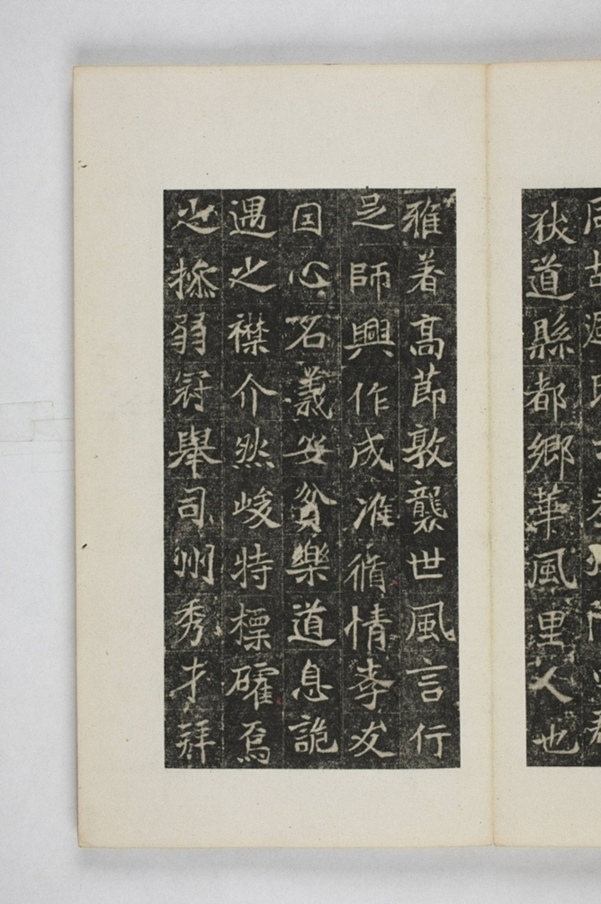 狄道縣都鄉華風里人也
雅著高節敦襲世風言行
足師興作成准循情孝友
囙心名義安貧樂道息詭
遇之襟介然峻特標礭焉
之操弱冠舉司州秀才拜